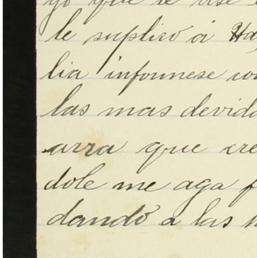 go que le
le suplico á Ha
lia informese
las mas devida
arra que cre
dole me aga f
dando a las